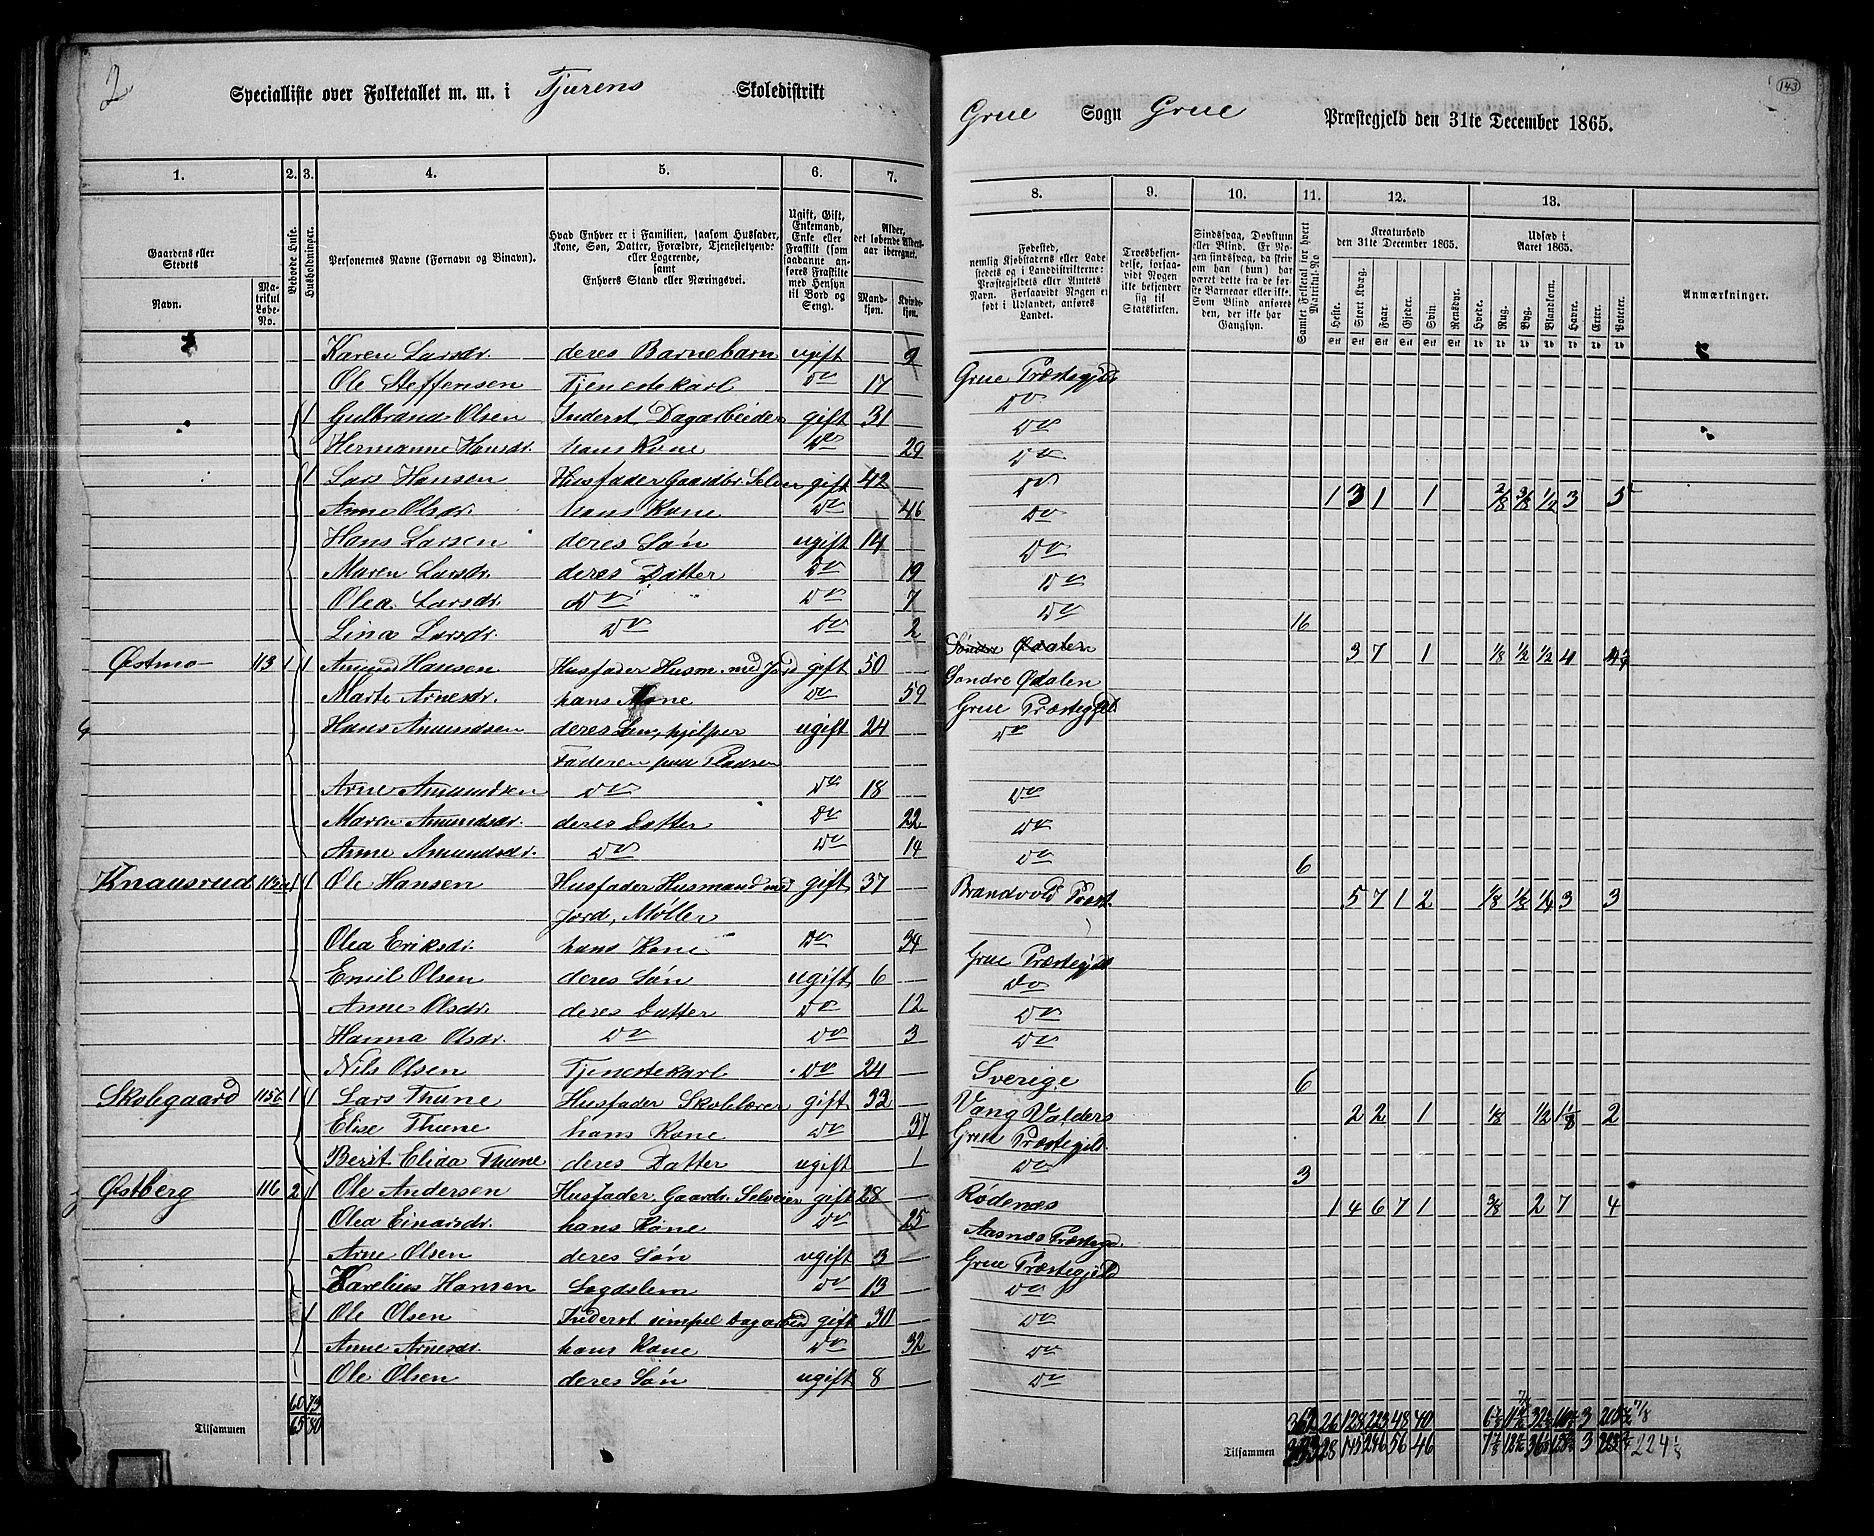 2
Specialliste over Folketallet m. m. i Tjurens Skoledistrikt
Grue Sogn Grue Præstegjeld den 31te December 1865.
143
1. 2. 3. 4. 5. 6. 7. 8. 9. 10. 11. 12. 13.
Gaardens eller Stedets
Navn.
Matrikul Løbe-No.
Beboede Huse.
Husholdninger.
Personernes Navne (Fornavn og Binavn).
Hvad Enhver er i Familien, saasom Husfader, Kone, Søn, Datter, Forældre, Tjenestetyende eller Logerende, samt Enhvers Stand eller Næringsvei.
Ugift, Gift, Enkemand, Enke eller Fraskilt (som saadanne anføres Fraskilte med Hensyn til Bord og Seng).
Alder, det løbende Aldersaar iberegnet.
Mandkjøn.
Kvindekjøn.
Fødested, nemlig Kjøbstadens eller Ladestedets og i Landdistrikterne: Præstegjeldets eller Amtets Navn. Forsaavidt Nogen er født i Udlandet, anføres Landet.
Troesbekjendelse, forsaavidt Nogen ikke bekjender sig til Statskirken.
Sindssvag, Døvstum eller Blind. Er Nogen sindssvag, da skriv om han (hun) har været dette fra de første Barneaar eller ikke. Som Blind anføres den, der ikke har Gangsyn.
Samlet Folketal for hvert Matrikul-No
Kreaturhold den 31te December 1865.
Heste. Stort Kvæg. Faar. Gjeder. Svin. Rensdyr.
Udsæd i Aaret 1865.
Hvede. Rug. Byg. Blandkorn. Havre. Erter. Poteter.
Anmærkninger.
Karen Larsdr. deres Barnebarn ugift 2 Grue Præstegjeld
Ole Steffensen Tjenestekarl Do 17 Do
1 Gulbrand Olsen Inderst, Dagarbeider gift 31 Do
Hermanne Hansdr. hans Kone Do 29 Do
1 Lars Hansen Husfader Gaardbr. Selveier gift 42 Do 1 3 1 1 2/8 3/8 1/2 3 5
Anne Olsdr. hans Kone Do 46 Do
Hans Larsen deres Søn ugift 14 Do
Maren Larsdr. deres Datter Do 19 Do
Olea Larsdr. Do Do 7 Do 16
Lina Larsdr. Do Do 2
Østmo 113 1 1 Amund Hansen Husfader Husm. med Jord gift 50 Søndre Ødalen 3 7 1 1/8 1/2 1/2 4
Marte Arnesdr. hans Kone Do 59 Søndre Ødalen
Hans Amundsen deres Søn, hjelper ugift 24 Grue Præstegjeld
Faderen paa Pladsen
Do
Arne Amundsen Do Do 18 Do
Maren Amundsdr. deres Datter Do 22 Do
Anne Amundsdr. Do Do 14 Do 6
Knausrud 115a 1 1 Ole Hansen Husfader Husmand med gift 37 Brandvold Præst. 5 7 1 2 1/8 1/8 1/4 3 3
Jord, Møller
Olea Eriksdr. hans Kone Do 34 Grue Præstegjeld
Emil Olsen deres Søn ugift 6 Do
Anne Olsdr. deres Datter Do 12 Do
Hanna Olsdr. Do Do 3 Do
Nils Olsen Tjenestekarl Do 24 Sverige 6
Skolegaard 115b 1 1 Lars Thune Husfader Skolelærer gift 32 Vang Valders 2 2 1 1/8 1/2 1 1/8 2
Elise Thune hans Kone Do 37 Grue Præstegjeld.
Berit Elida Thune deres Datter ugift 1 Do 3
Østberg 116 2 1 Ole Andersen Husfader, Gaardr. Selveier gift 28 Rødenæs 1 4 6 7 1 3/8 2 7 4
Olea Einarsdr. hans Kone Do 25 Aasnæs Præstegj.
Arne Olsen deres Søn ugift 3 Grue Præstegjeld
Karelius Hansen Lægdslem Do 13 Do
1 Ole Olsen Inderst simpel Dagarbeid gift 30 Do
Anne Arnesdr. hans Kone Do 32 Do
Ole Olsen deres Søn ugift 8 Do
60 73
Tilsammen 65 80
362 26 128 223 48 40 3
Tilsammen 28 145 246 56 46 3 224 1/8